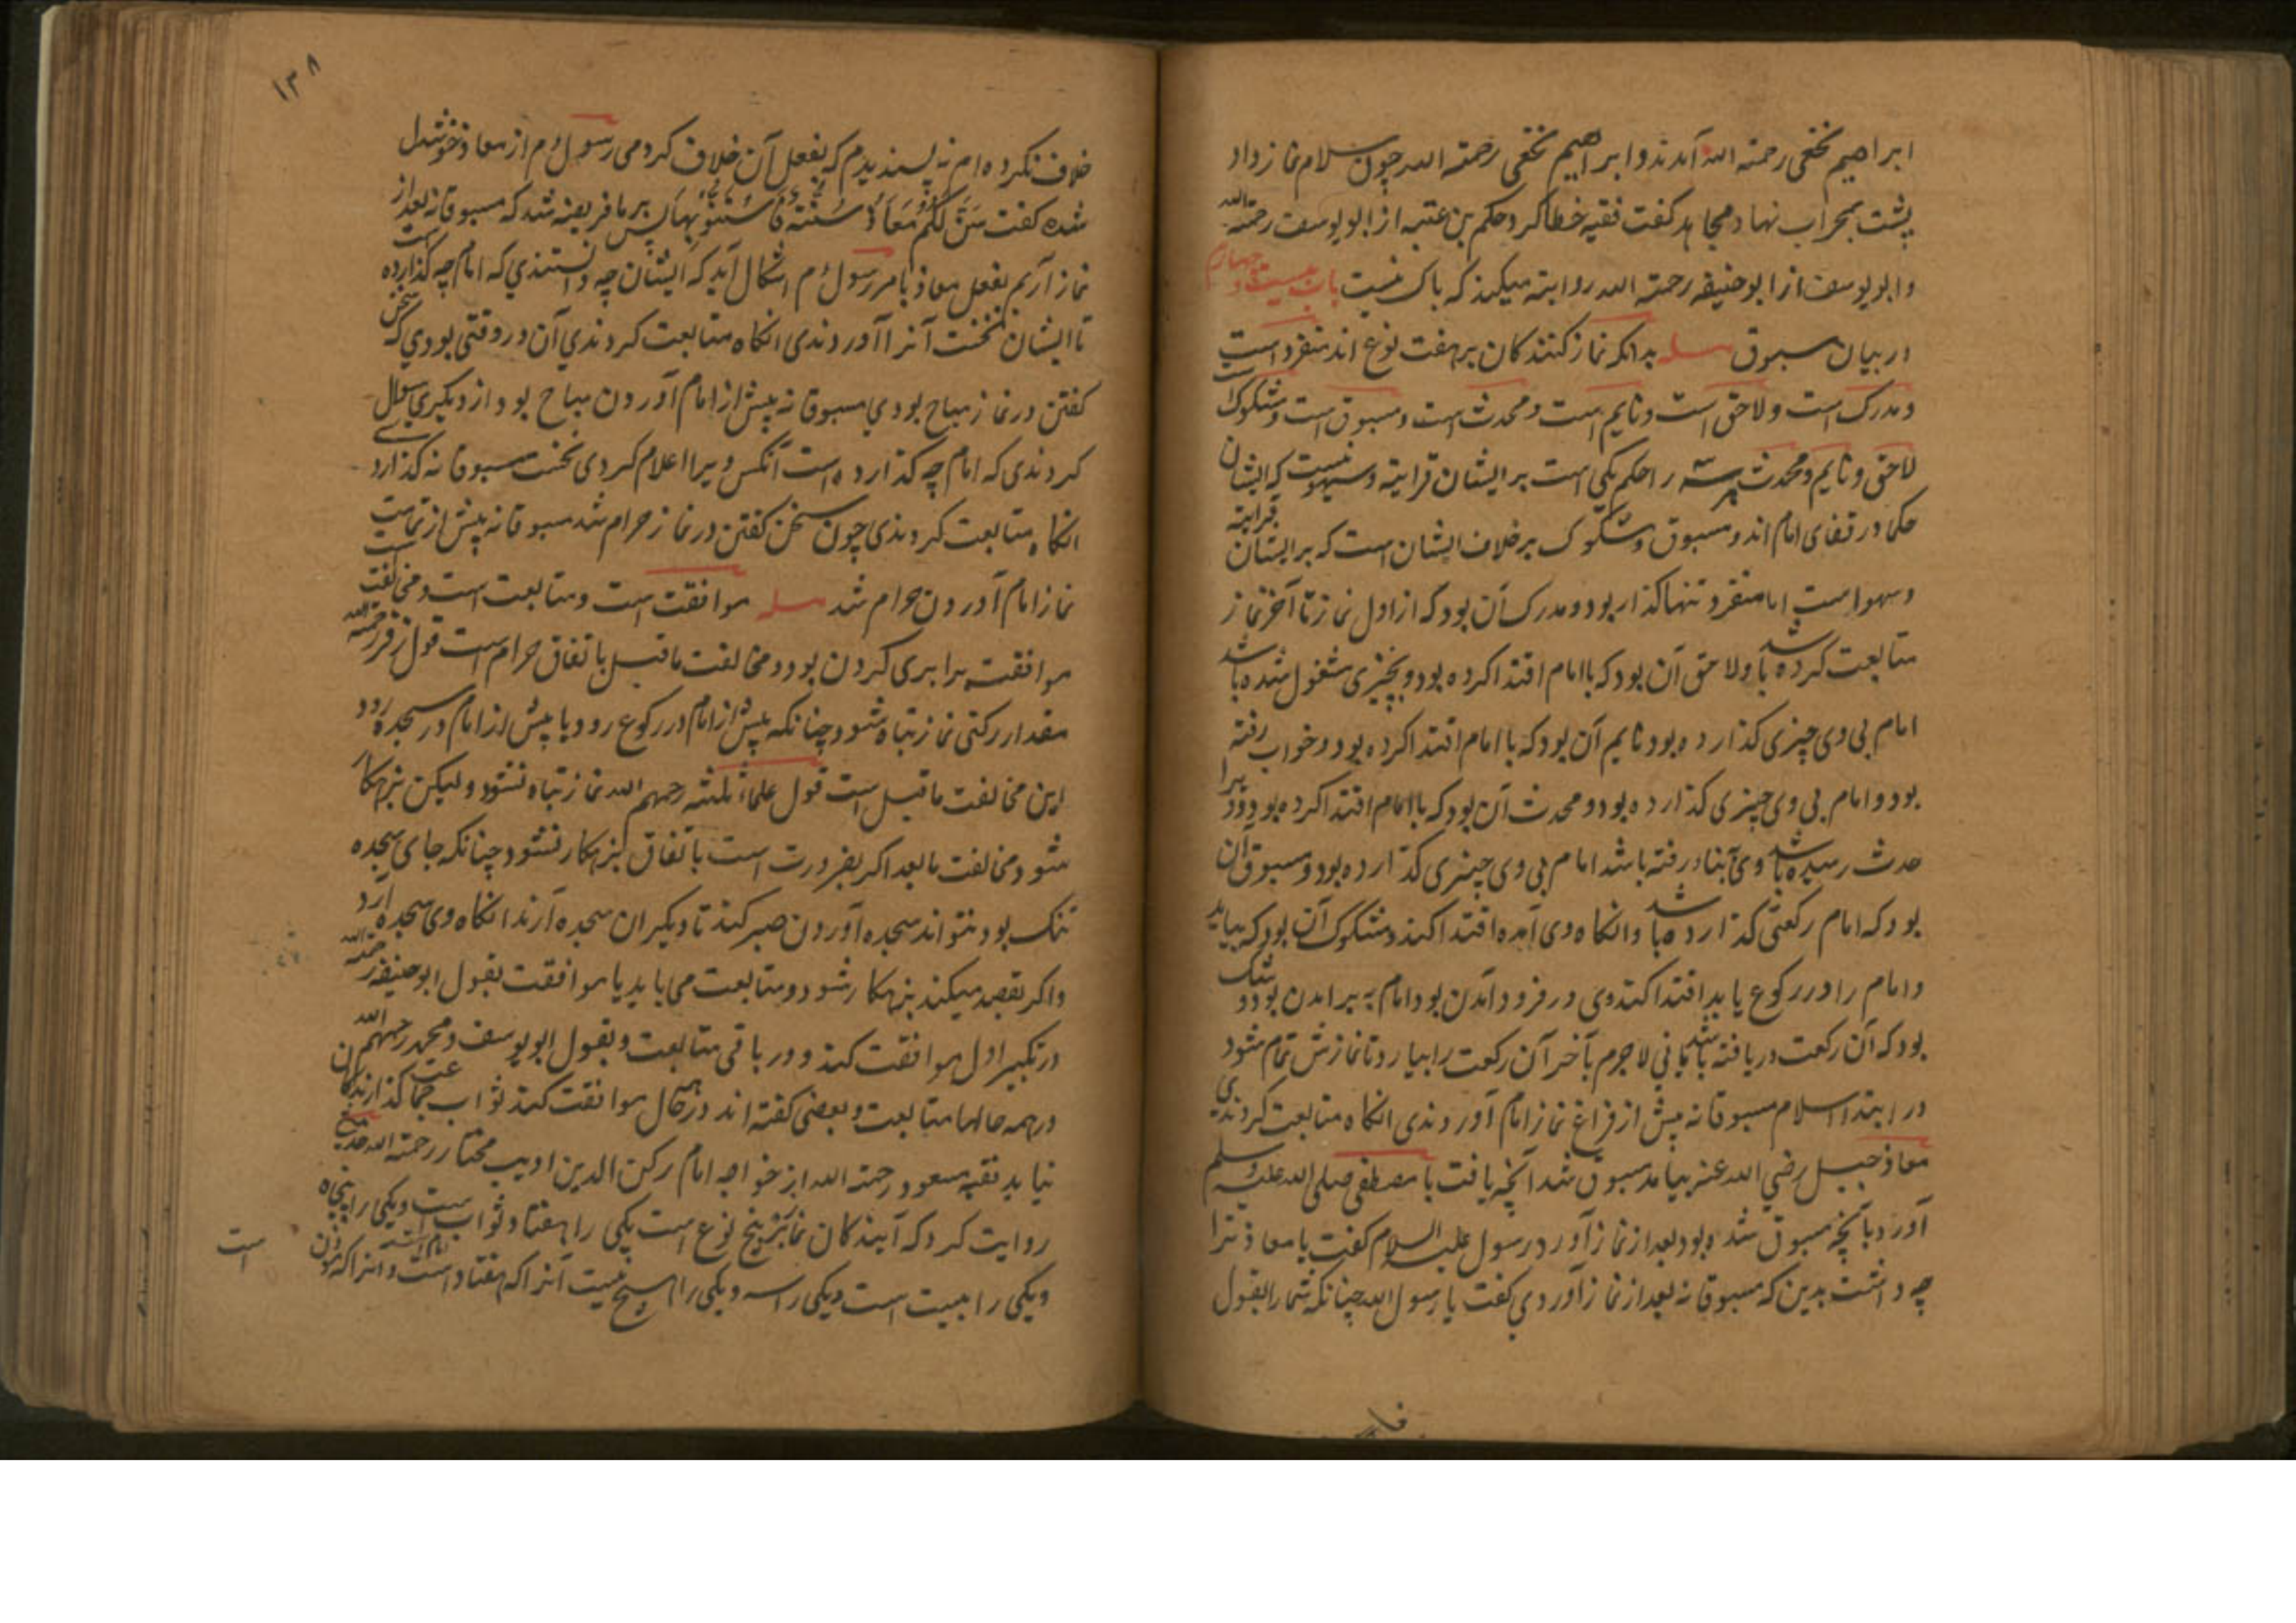 ابراهیم نخعی رحمته الله آمدند و ابراهیم نخعی رحمته الله چون سلام نماز داد
پشت بمحراب نهاد مجاهد کفت فقیه خطا کرد حکم بن عتبه از ابو یوسف رحمته الله
و ابو یوسف از ابو حنیفه رحمته الله روایته میکند که باک نیست باب بیست و چهارم
در بیان مسبوق مسله بدانکه نماز کنندکان بر هفت نوع اند منفرد است
و مدرک است و لاحق است و نایم است و محدث است و مسبوق است و مشکوک است
لاحق و نایم و محدث هر سه را حکم یکی است بر ایشان قرایته و سهو نیست که ایشان
حکما در قفای امام اند و مسبوق و مشکوک بر خلاف ایشان است که بر ایشان قرایته
و سهو است اما منفرد تنها کذار بود و مدرک آن بود که از اول نماز تا آخر نماز
متابعت کرده باشد و لاحق آن بود که با امام اقتدا کرده بود و بچیزی مشغول شده باشد
امام بی وی چیزی کذارده بود نایم آن بود که با امام اقتدا کرده بود و خواب رفته
بود و امام بی وی چیزی کذارده بود و محدث آن بود که با امام اقتدا کرده بود و ویرا
حدث رسیده باشد وی آبنا در رفته باشد امام بی وی چیزی کذارده بود و مسبوق آن
بود که امام رکعتی کذارده باشد و انکاه وی آمده اقتدا کند و مشکوک آن بود که بیاید
و امام را در رکوع یابد اقتدا کند وی در فرود آمدن بود امام به برامدن بود و شک
بود که آن رکعت دریافته باشد یا نی لاجرم بآخر آن رکعت را بیارد تا نمازش تمام شود
در ابتدا اسلام مسبوقانه پیش از فراغ نماز امام آوردندی انکاه متابعت کردندی
معاذ جبل رضی الله عنه بیامد مسبوق شد آنچه یافت با مصطفی صلی الله علیه وسلم
آورد بآنچه مسبوق شده بود بعد از نماز آورد رسول علیه السلام کفت یا معاذ ترا
چه داشت بدین که مسبوقانه بعد از نماز آوردی کفت یا رسول الله چنانکه شما را بقول
۱۳۸
خلاف نکرده ام نه پسندیدم که بفعل آن خلاف کردمی رسول م از معاذ خوشدل
شده کفت سَنَّ لَکُم مُعَاذٌ سُنَّةً فَاسْتَنُّوا بِهَا پس بر ما فریضه شد که مسبوقانه بعد از
نماز آریم بفعل معاذ بامر رسول م اشکال آید که ایشان چه دانستندی که امام چه کذارده است
تا ایشان نخست آنرا آوردندی انکاه متابعت کردندی آن در وقتی بودی که سخن
کفتن در نماز مباح بودی مسبوقانه پیش از امام آوردن مباح بود از دیکری سوال
کردندی که امام چه کذارده است آنکس ویرا اعلام کردی نخست مسبوقانه کذاردی
انکاه متابعت کردندی چون سخن کفتن در نماز حرام شد مسبوقانه پیش از
نماز امام آوردن حرام شد مسله موافقت است و متابعت است و مخالفت است
موافقت برابری کردن بود و مخالفت ماقبل باتفاق حرام است قول زفر رحمته الله
مقدار رکنی نماز تباه شود چنانکه پیش از امام در رکوع رود یا پیش از امام در سجده رود
این مخالفت ماقبل است قول علماء ثلثه رحمهم الله نماز تباه نشود ولیکن بزهکار
شود مخالفت مابعد اکر بضرورت است باتفاق بزهکار نشود چنانکه جای سجده
تنک بود نتواند سجده آوردن صبر کند تا دیکران سجده آرند انکاه وی سجده آرد
واکر بقصد میکند بزهکار شود و متابعت می باید یا موافقت بقول ابو حنیفه رحمته الله
در تکبیر اول موافقت کند و در باقی متابعت و بقول ابو یوسف و محمد رحمهم الله
در همه حالها متابعت و بعضی کفته اند در همه حال موافقت کند ثواب جماعت کذارندکان
نیابد فقیه مسعود رحمته الله از خواجه امام رکن الدین ادیب مختار رحمته الله
روایت کرد که آیندکان نماز پنج نوع است یکی را هفتاد ثواب است و یکی را پنجاه
ویکی را بیست است ویکی راسه ویکی را هیچ نیست آنرا که هفتاد است امام است و آنرا که موذن
است